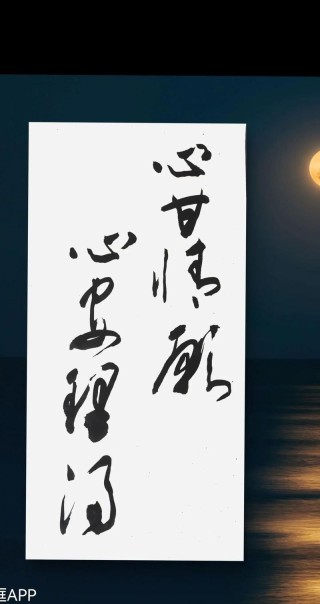 心甘情願
心安理得
框APP